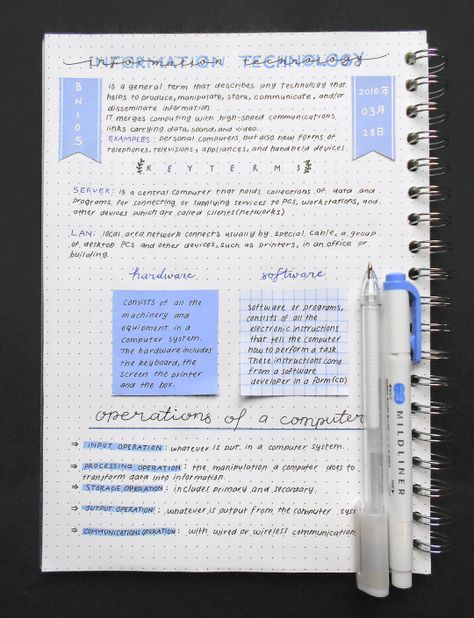 INFORMATION TECHNOLOGY
information technology
BN105
is a general term that describes any technology that
helps to produce, manipulate, store, communicate, and/or
disseminate information.
IT merges computing with high-speed communications
links carrying data, sound, and video.
EXAMPLES: personal computers but also new forms of
telephones, televisions, appliances, and handheld devices.
2016年
03月
28日
KEYTERMS
SERVER: is a central computer that holds collections of data and
programs. for connecting or supplying services to PCs, workstations, and
other devices which are called clients (networks)
LAN: local area network connects usually by special cable, a group
of desktop PCs and other devices, such as printers, in an office or
building.
hardware
consists of all the
machinery and
equipment in a
computer system.
The hardware includes
the keyboard, the
screen the printer
and the box.
software
software or programs,
consists of all the
electronic instructions
that tell the computer
how to perform a task.
These instructions come
from a software
developer in a form (CD)
operations of a computer
⇒ INPUT OPERATION: whatever is put in a computer system.
⇒ PROCESSING OPERATION: the manipulation a computer does to
transform data into information.
⇒ STORAGE OPERATION: includes primary and secondary.
⇒ OUTPUT OPERATION: whatever is output from the computer
⇒ COMMUNICATIONS OPERATION: with wired or wireless communication
MILDLINER